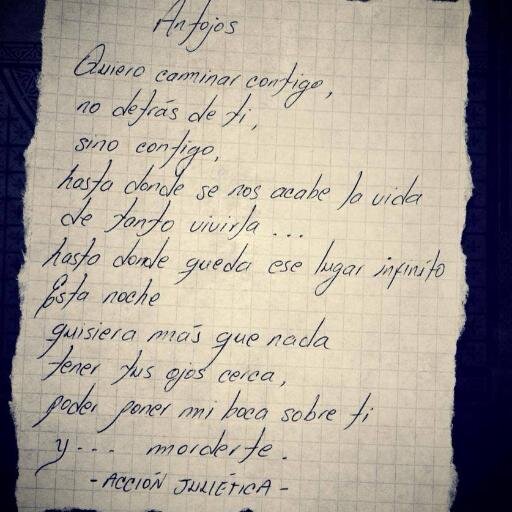 Antojos
Quiero caminar contigo,
no detrás de ti,
sino contigo,
hasta donde se nos acabe la vida
de tanto vivirla...
hasta donde queda ese lugar infinito
Esta noche
quisiera más que nada
tener tus ojos cerca,
poder poner mi boca sobre ti
y... morderte.
- ACCIÓN JULIÉTICA -